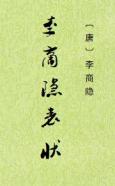 李商隐表状
〔唐〕李商隐